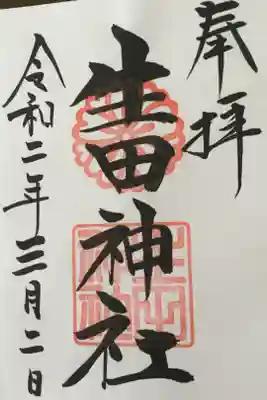 奉拝
生田神社
令和二年三月二日